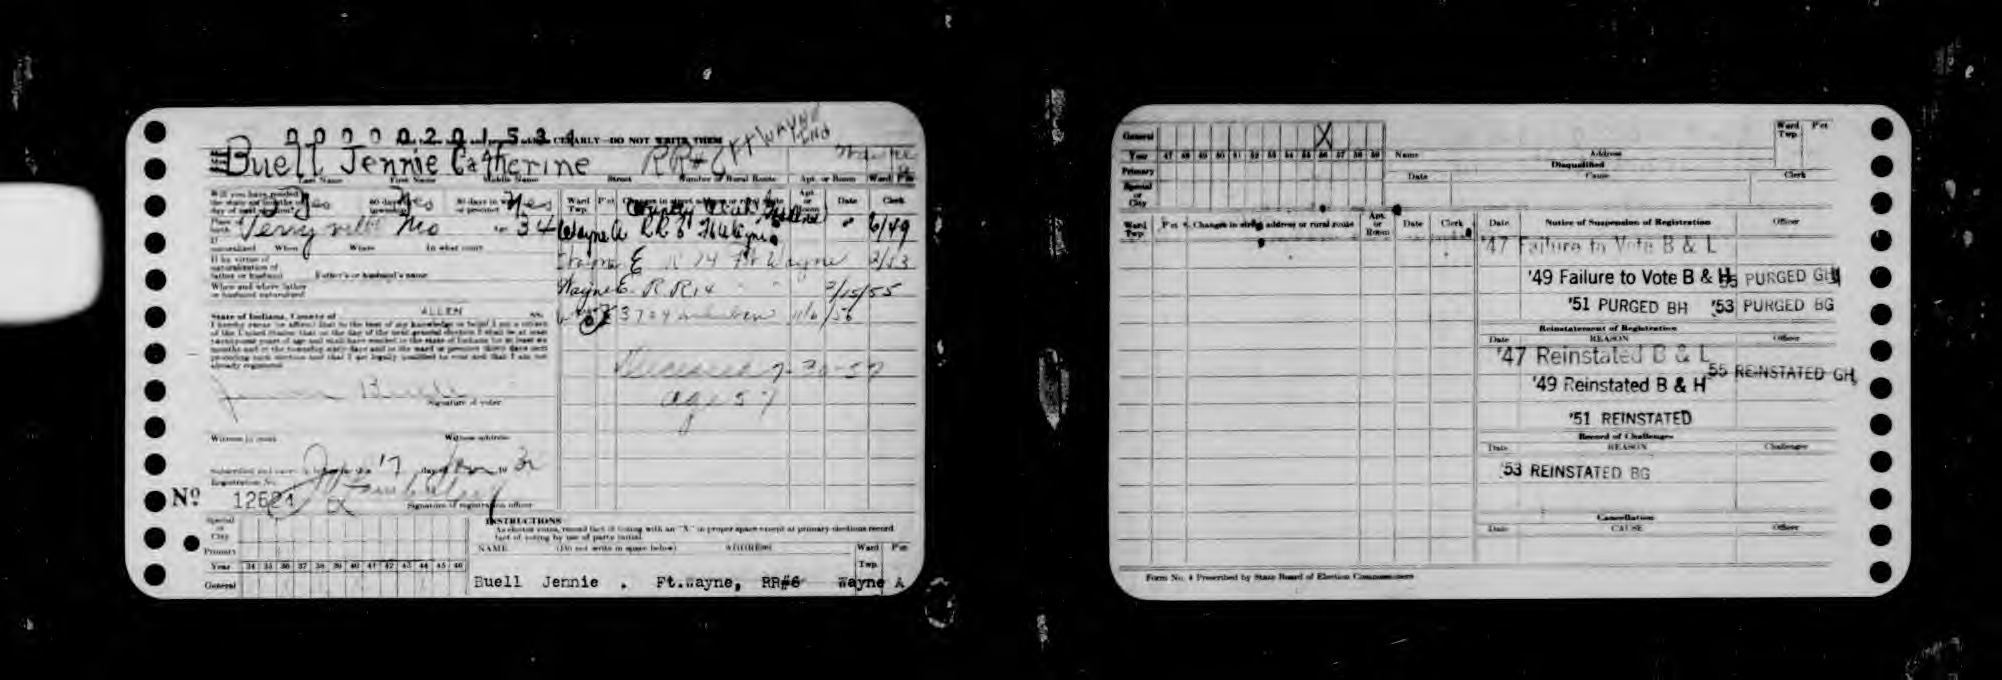 0000020153
CLEARLY—DO NOT WRITE THEM
Buell Jennie Catherine RR#6 Ft Wayne Ind
Last Name First Name Middle Name Street Number or Rural Route Apt. or Room Ward P'ct
Yes Yes Yes
Ward Twp. P'ct Changes in street address or rural route Apt. or Room Date Clerk
Perryville Mo 34
Wayne A RR 6 Ft Wayne 6/49
naturalized When Where In what court
Wayne E R 14 Ft Wayne 2/53
If by virtue of naturalization of father or husband Father's or husband's name
When and where father or husband naturalized
Wayne E R.R 14 " " 2/15/55
State of Indiana, County of ALLEN SS:
3704 11/6/56
I hereby swear (or affirm) that to the best of my knowledge or belief I am a citizen
of the United States; that on the day of the next general election I shall be at least
twenty-one years of age and shall have resided in the state of Indiana for at least six
months and in the township sixty days and in the ward or precinct thirty days next
preceding such election and that I am legally qualified to vote and that I am not
already registered.
Deceased 7-30-57
age 57
Jennie Buell
Signature of voter
Witness to mark Witness address
Subscribed and sworn to before me this 17 day of 19
Registration No.
Nº 12621
Signature of registration officer
Special or City
Primary
Year 34 35 36 37 38 39 40 41 42 43 44 45 46
General
INSTRUCTIONS
As elector votes, record fact of voting with an "X" in proper space except at primary elections record
fact of voting by use of party initial.
NAME (Do not write in space below) ADDRESS Ward Twp. P'ct
Buell Jennie . Ft.Wayne, RR#6 Wayne A
General X
Year 47 48 49 50 51 52 53 54 55 56 57 58 59
Primary
Special or City
Name Address Ward Twp. P'ct
Disqualified
Date Cause Clerk
Ward Twp. P'ct Changes in street address or rural route Apt. or Room Date Clerk
Date Notice of Suspension of Registration Officer
'47 Failure to Vote B & L
'49 Failure to Vote B & H 55 PURGED GH
'51 PURGED BH '53 PURGED BG
Reinstatement of Registration
Date REASON Officer
'47 Reinstated B & L
'49 Reinstated B & H 55 REINSTATED GH
'51 REINSTATED
Record of Challenges
Date REASON Challenger
'53 REINSTATED BG
Cancellation
Date CAUSE Officer
Form No. 4 Prescribed by State Board of Election Commissioners